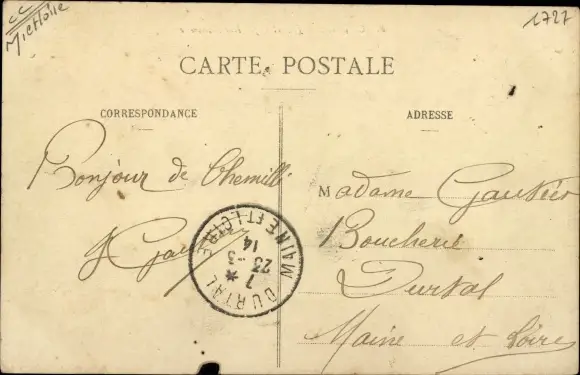 cc
Michoïse
1727
CARTE POSTALE
CORRESPONDANCE
ADRESSE
Bonjour de Chemillé
Gautier
Madame Gautier
Boucherie
Durtal
Maine et Loire
DURTAL
7 *
23 - 3
14
MAINE ET LOIRE